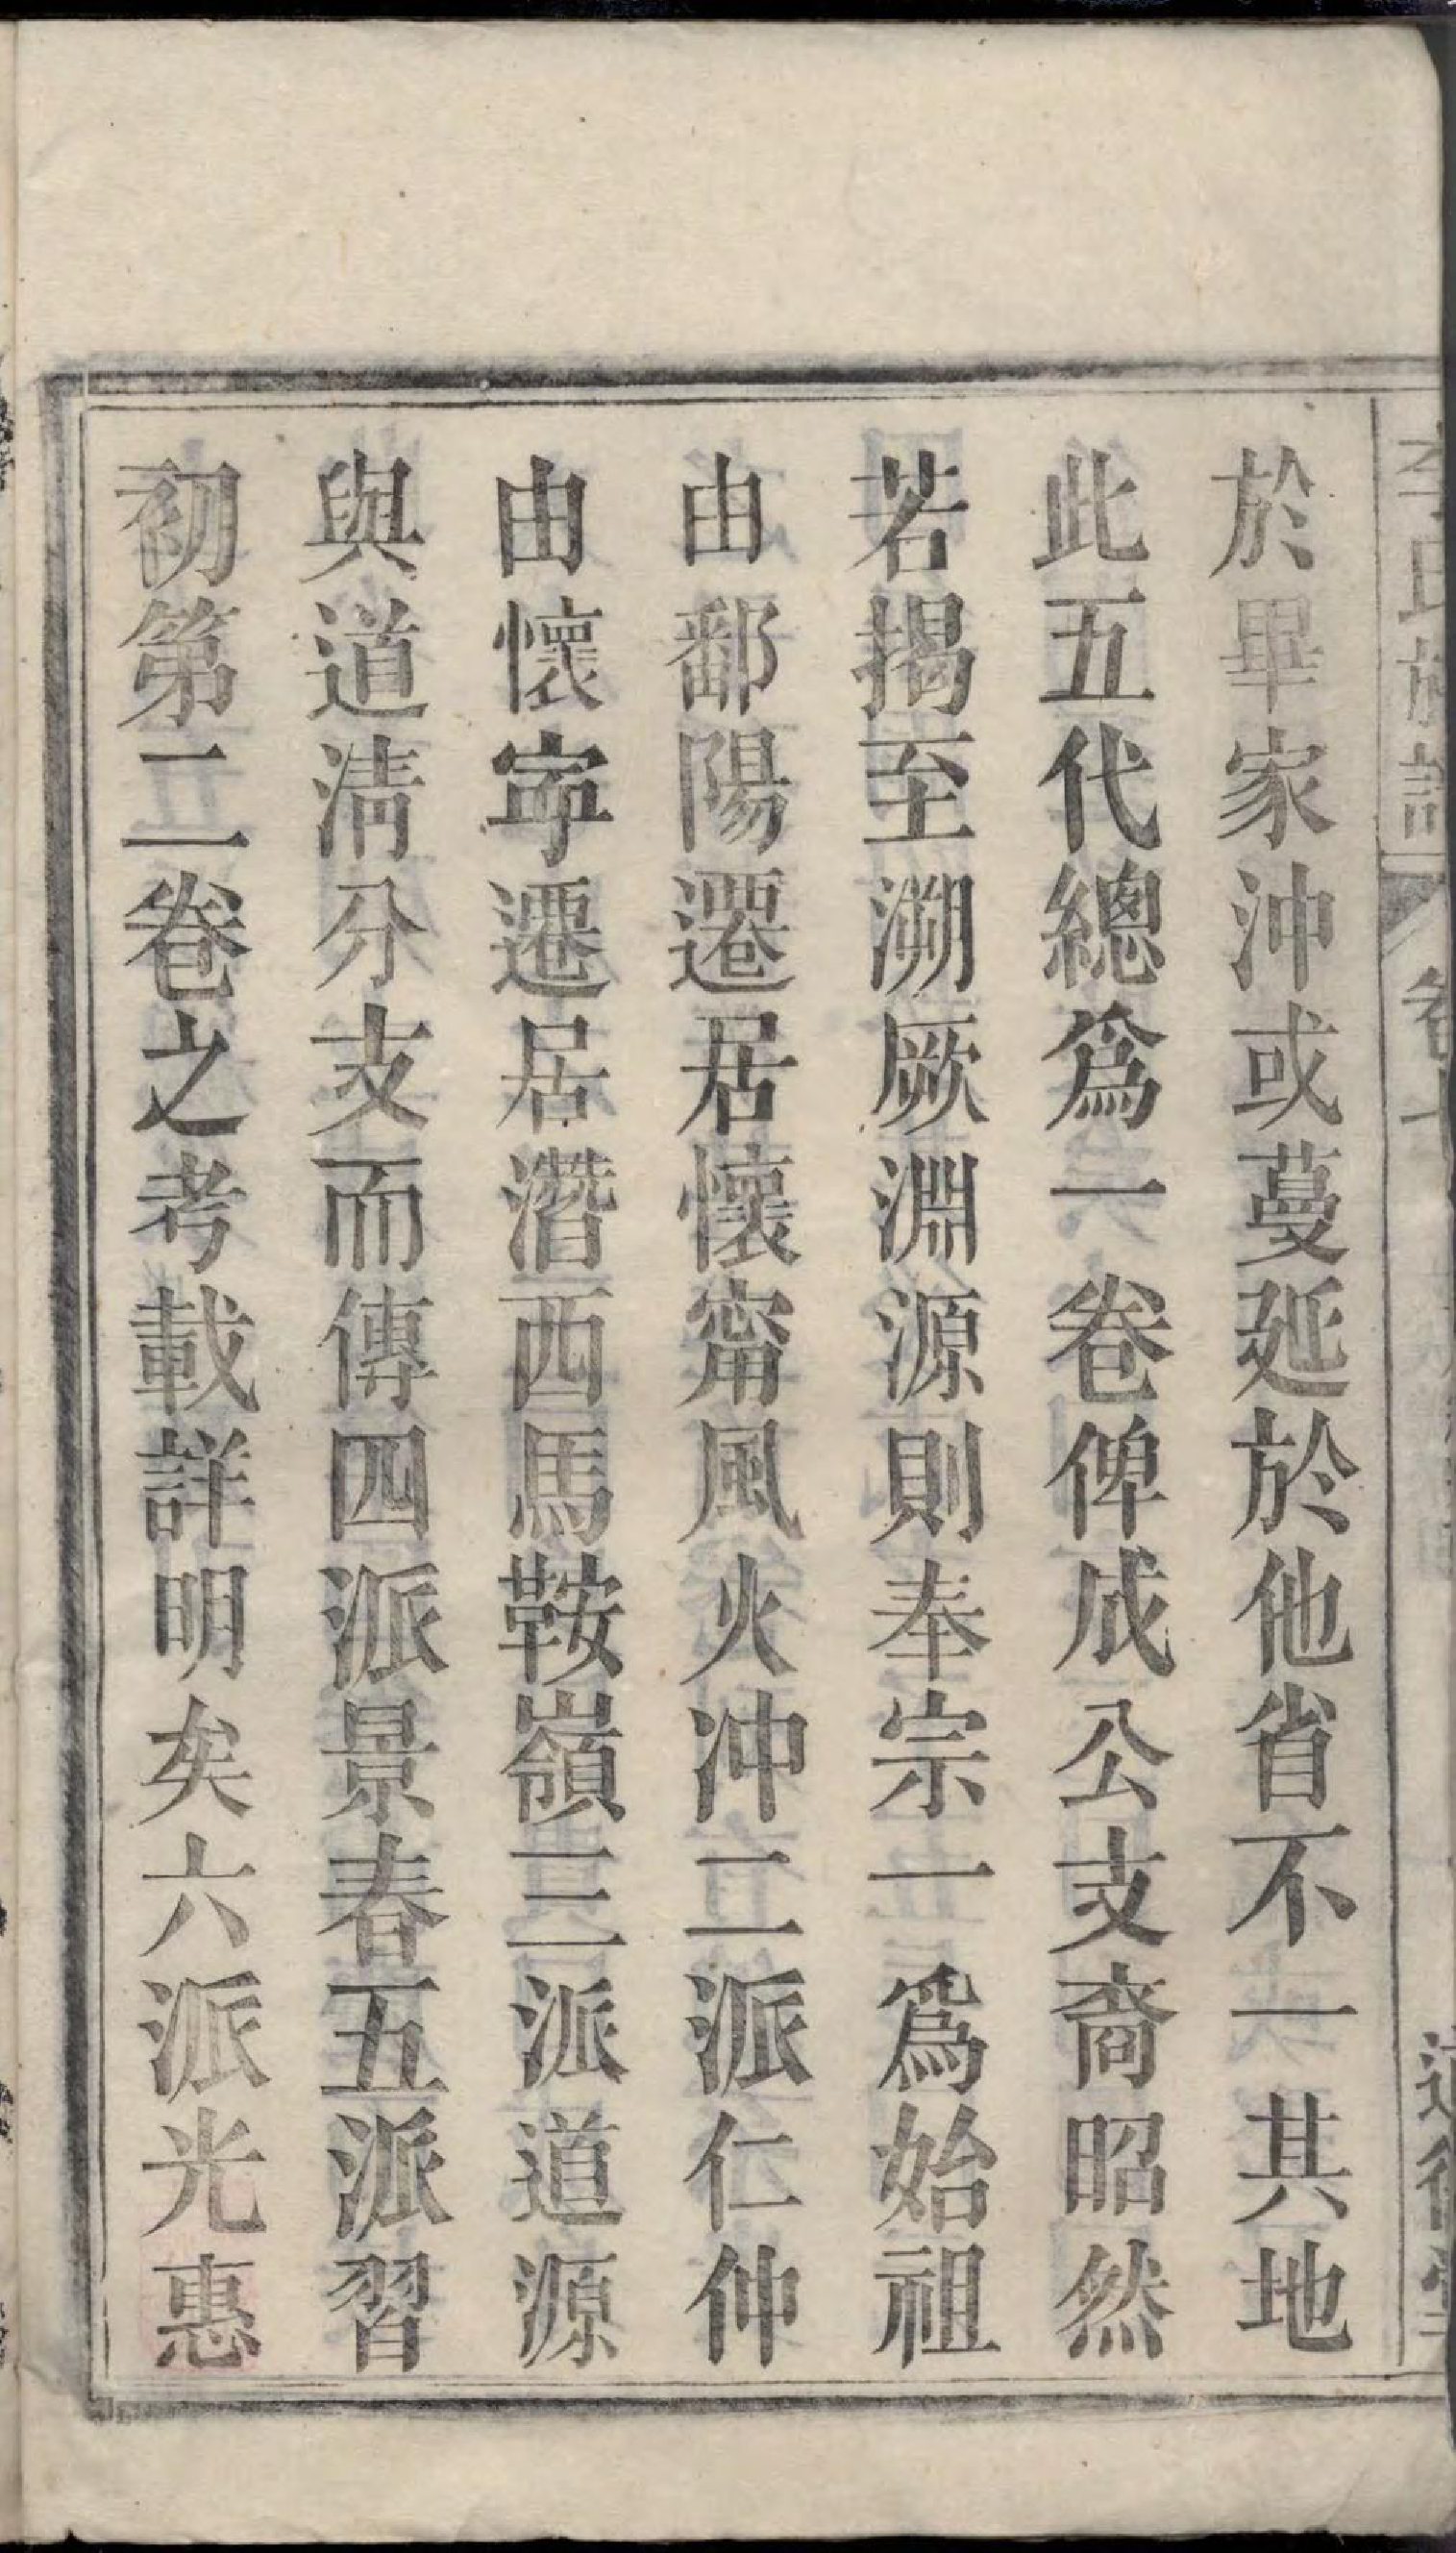 於畢家沖或蔓延於他省不一其地
此五代總爲一卷俾成公支裔昭然
若揭至溯厥淵源則奉宗一爲始祖
由鄱陽遷居懷甯風火沖二派仁仲
由懷寕遷居潛西馬鞍嶺三派道源
與道淸分支而傳四派景春五派習
初第二卷之考載詳明矣六派光惠